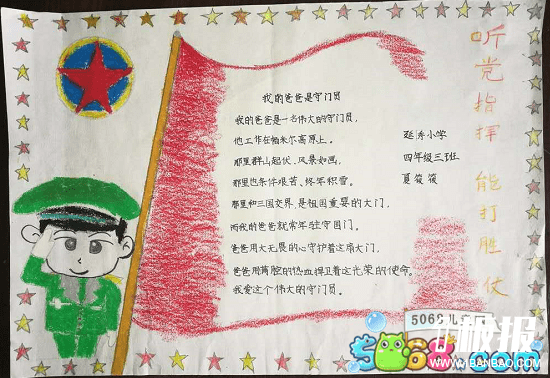 我的爸爸是守门员
我的爸爸是一名伟大的守门员，
他工作在帕米尔高原上。
那里群山起伏、风景如画，
那里也条件艰苦、终年积雪。
那里和三国交界、是祖国重要的大门。
而我的爸爸就常年驻守国门。
爸爸用大无畏的心守护着这扇大门。
爸爸用满腔的热血捍卫着这光荣的使命。
我爱这个伟大的守门员。
延秀小学
四年级三班
夏筱筱
听党指挥
能打胜仗
5068儿
板报
5068.com
WWW.BANBAO.COM